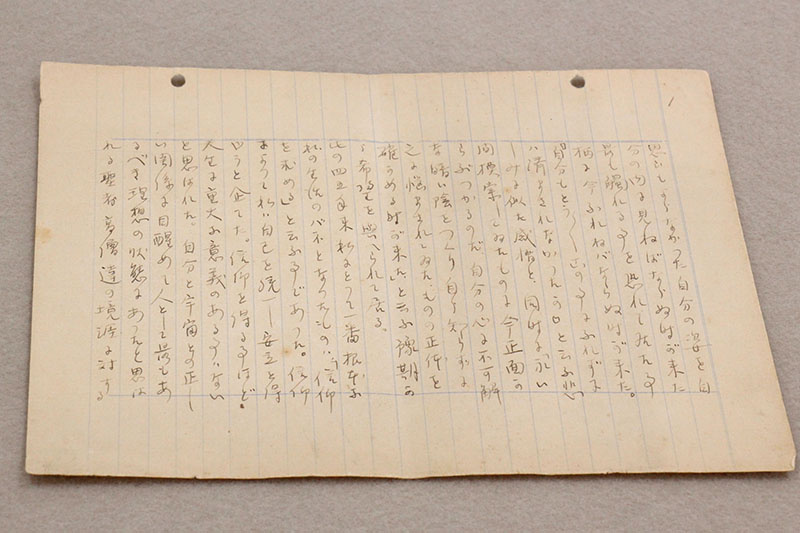 思ひもよらなかった自分の姿を自
分の内に見ねばならぬ時が来た
最も触れる事を恐れてゐた事
柄に今ふれねばならぬ時が来た。
自分もとう〱この事にふれずに
は済まされなかつたのかと云ふ悲
しみに似た感情と、同時に、永い
間模索してゐたものに今正面か
らぶつかるのだ 自分の心に不可解
な暗い陰をつくり自ら知らずに
之に悩まされてゐた、ものの正体を
確かめる時が来たと云ふ豫期の
希望を與へられて居る。
此の四五年来私にとつて一番根本な
私の生活の中心となつたものは、信仰
を求めると云ふ事であつた。信仰
によつて私は自己を統一し安立を得
やうと企てた。信仰を得る事ほど
人生に重大な意義のある事はない
と思はれた。自分と宇宙との正し
い関係に目醒めて人として最もあ
るべき理想の状態にあつたと思は
れる聖者高僧達の境涯に対する